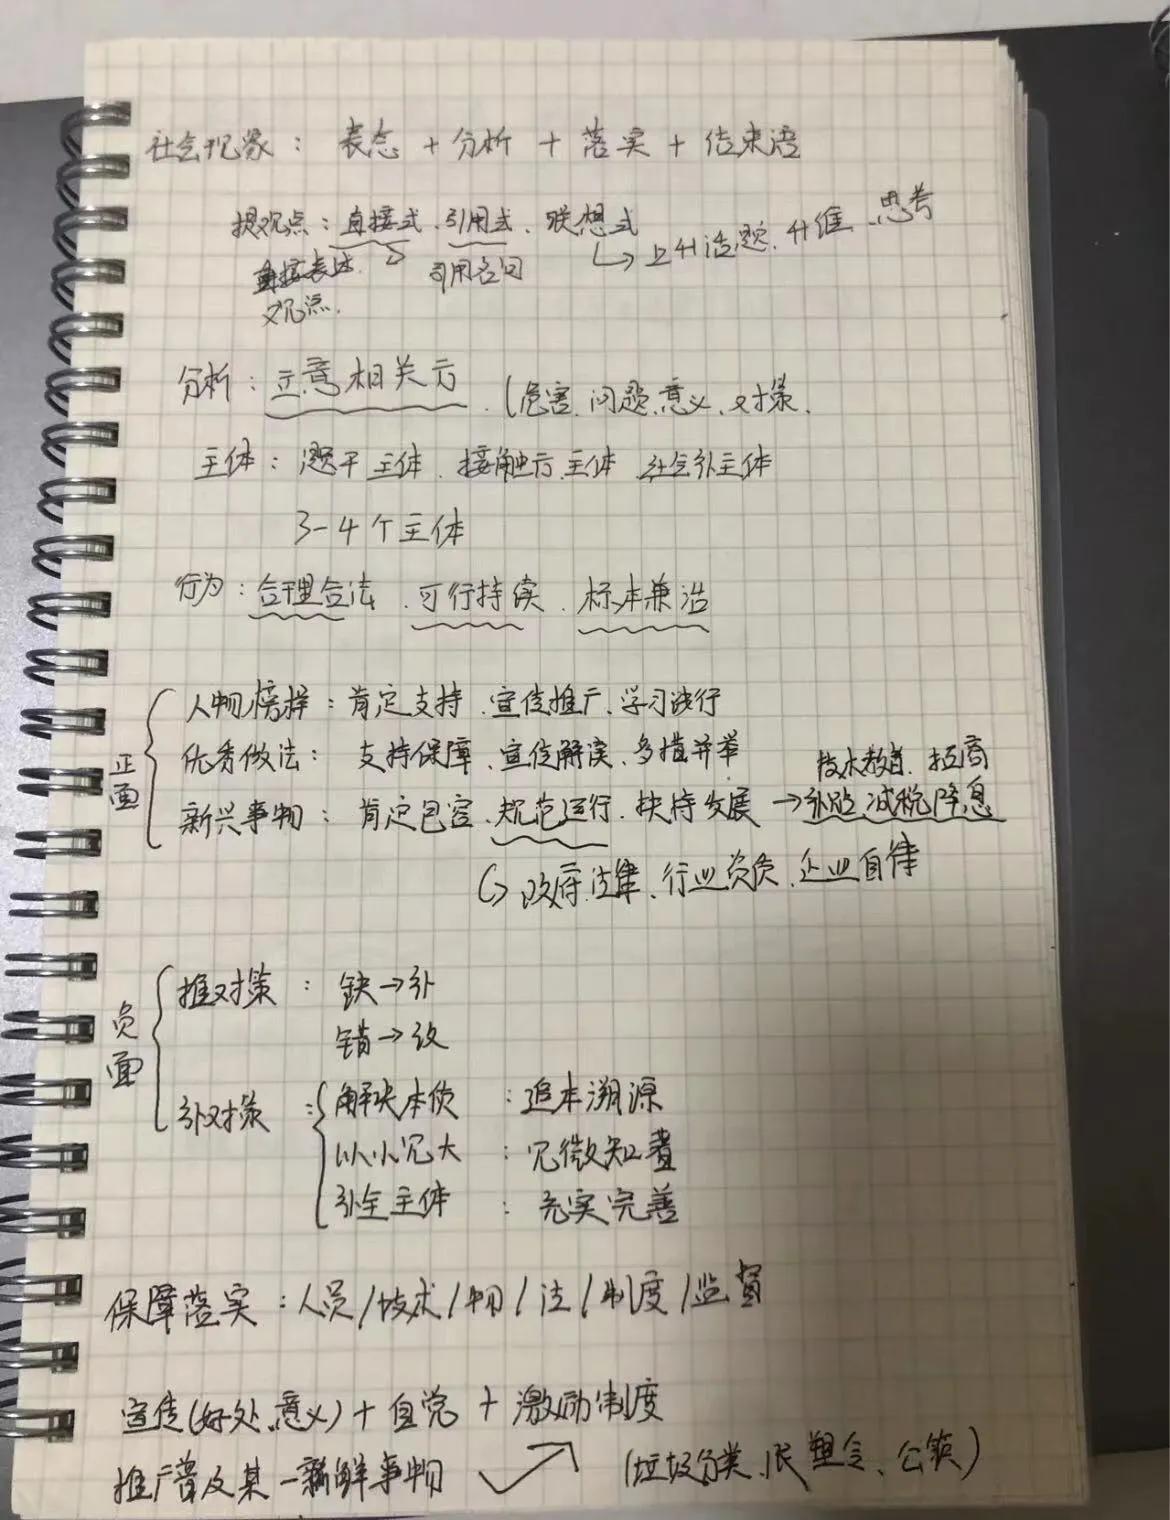 社会现象：表态 + 分析 + 落实 + 结束语
提观点：直接式、引用式、联想式 → 上升话题、升维、思考
直接表述 引用名句
观点.
分析：立意相关方 (危害、问题、意义、对策.
主体：题干主体、接触方主体 社会外主体
3-4个主体
行为：合理合法、可行持续、标本兼治
正面
人物榜样：肯定支持、宣传推广、学习践行
优秀做法：支持保障、宣传解读、多措并举
技术教育、招商
新兴事物：肯定包容、规范运行、扶持发展 → 补贴、减税降息
→ 政府法律、行业资质、企业自律
负面
推对策：缺→补
错→改
补对策：
解决本质：追本溯源
以小见大：见微知著
补全主体：充实完善
保障落实：人员/技术/物/法/制度/监督
宣传(好处、意义) + 自觉 + 激励制度
推广普及某一新鲜事物 (垃圾分类、限塑令、公筷)